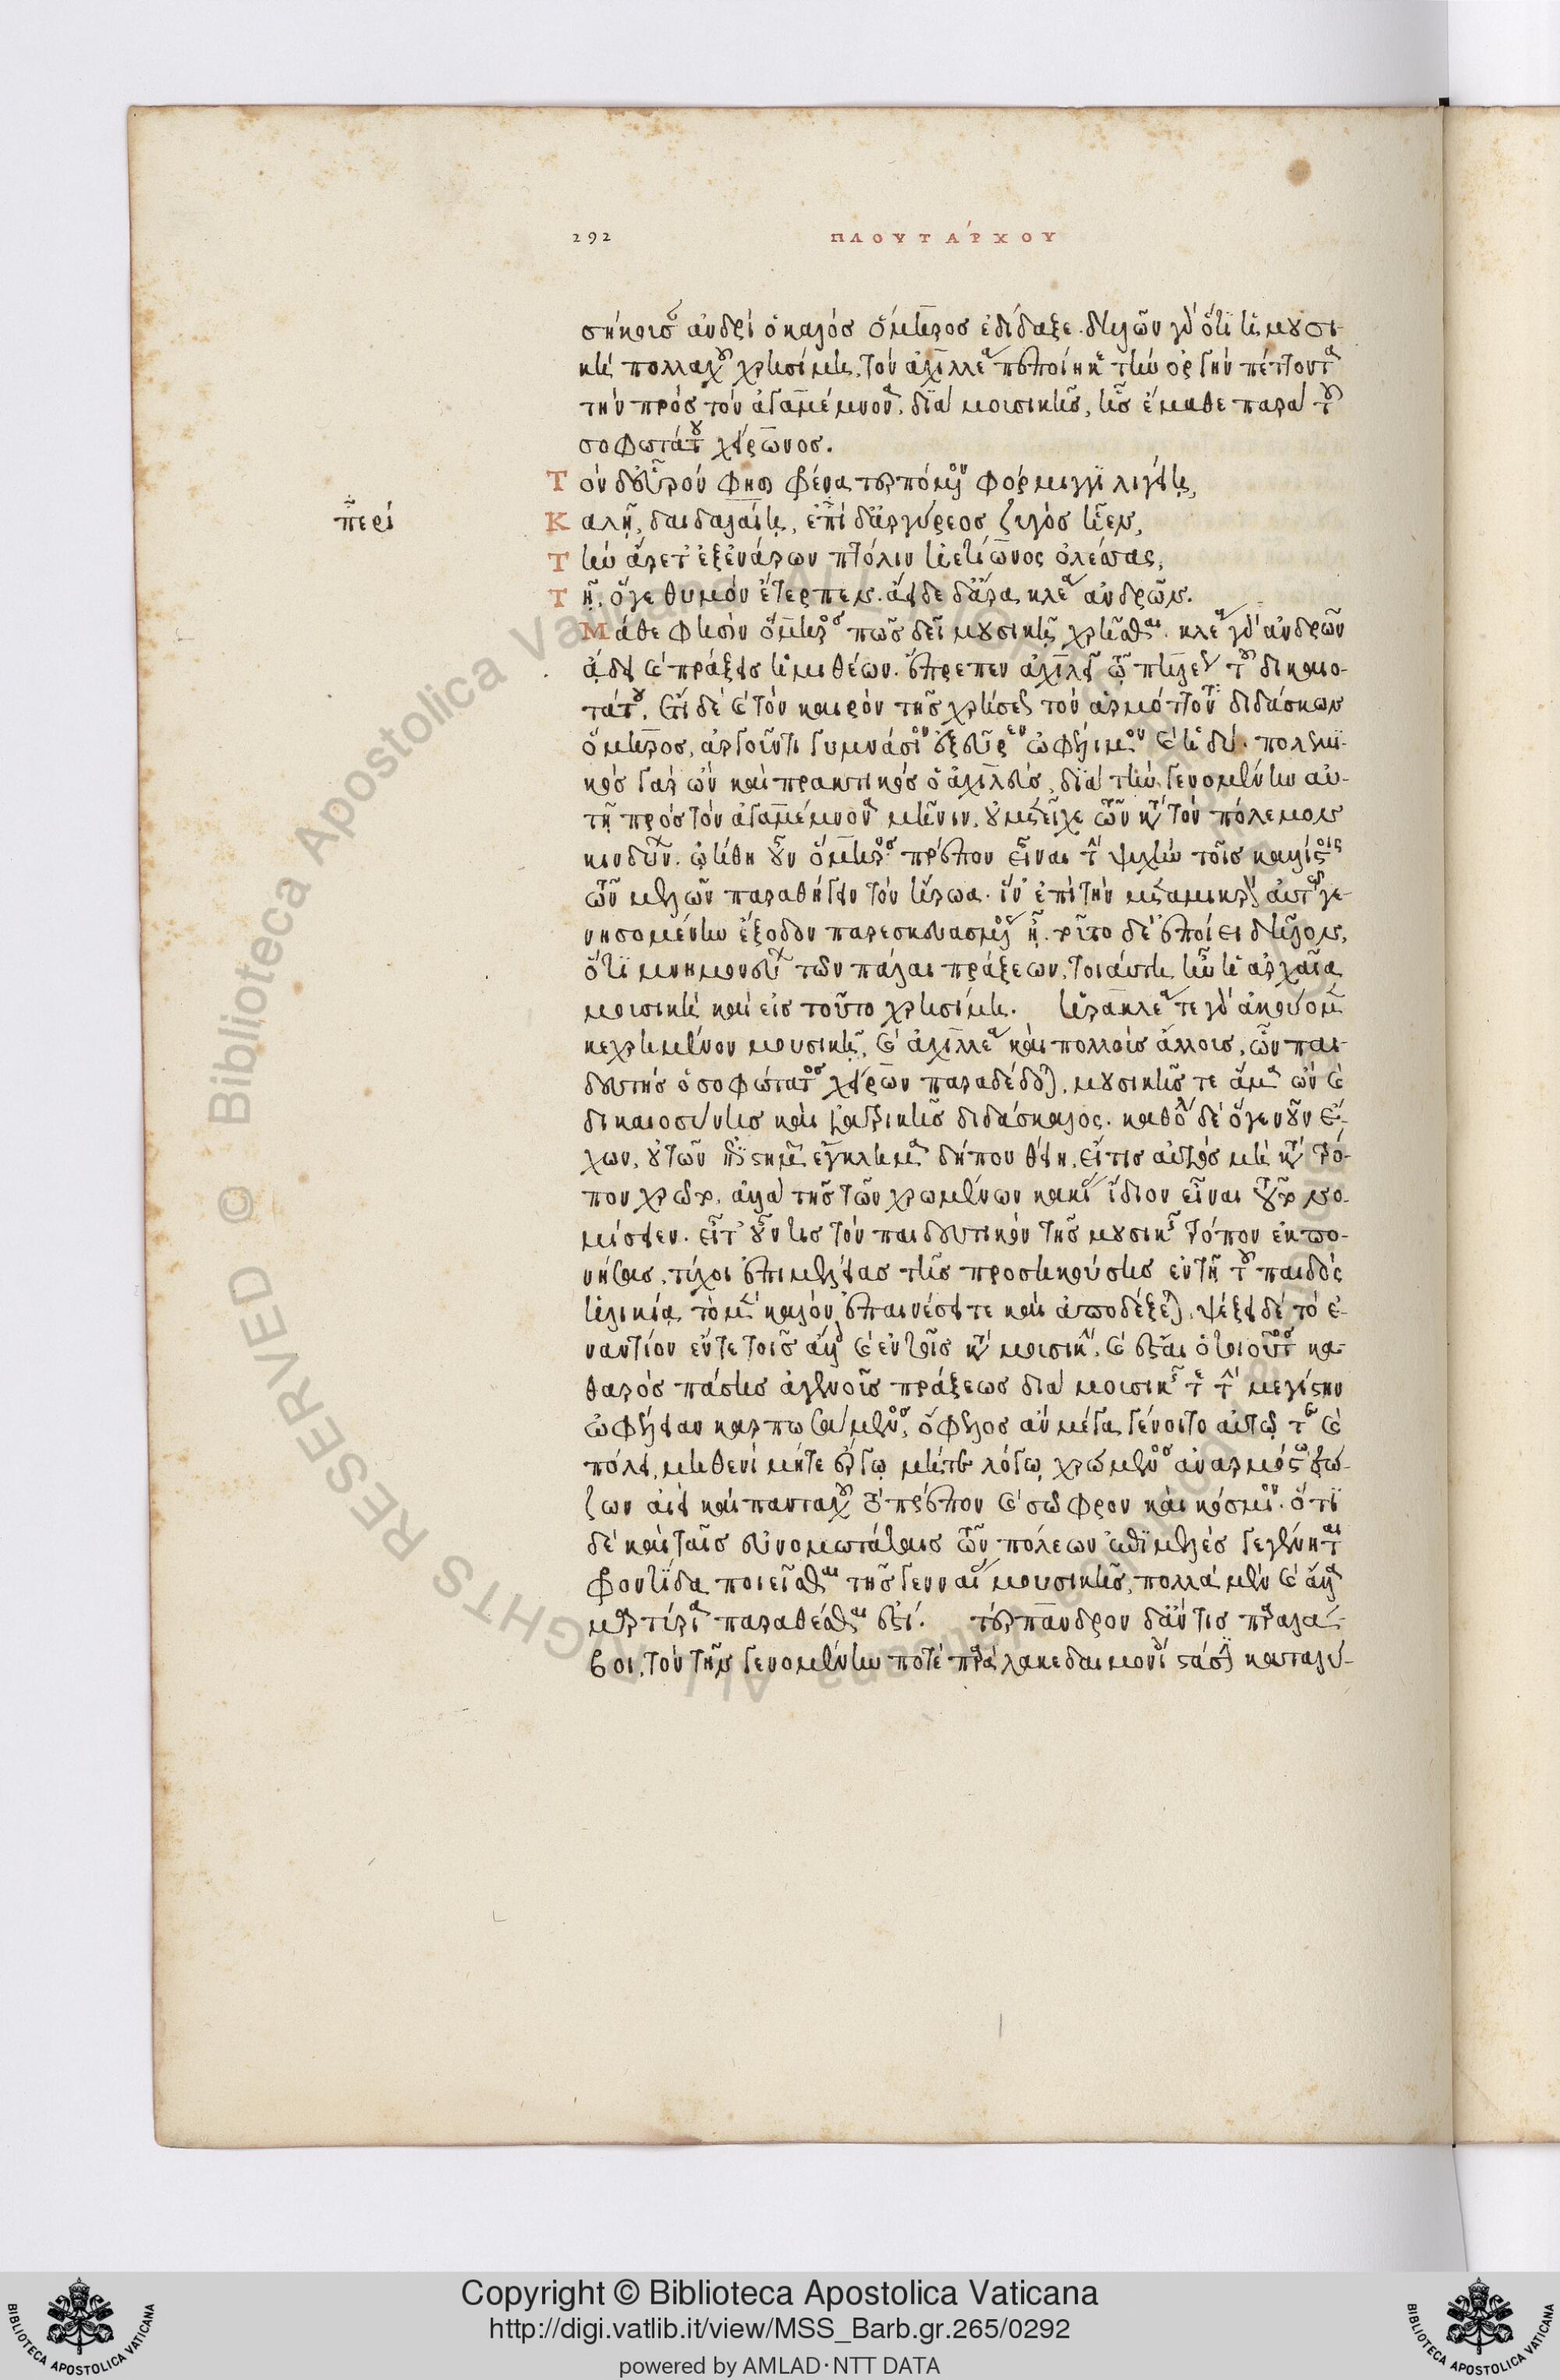 292 ΠΛΟΥΤΆΡΧΟΥ
σήκοισ ἀνδρὶ ὁ καλὸσ ὅμηροσ ἐδίδαξε. δηλῶν γὰρ ὅτι ἡ μουσι-
κὴ πολλαχοῦ χρησίμη, τὸν ἀχιλλέα πεποίηκε τὴν ὀργὴν πέττοντα
τὴν πρὸσ τὸν ἀγαμέμνονα, διὰ μουσικῆσ, ἧσ ἔμαθε παρὰ τοῦ
σοφωτάτου χείρωνοσ.
Τὸν δεῦρον φησὶ φρένα τερπόμενον φόρμιγγι λιγείῃ,
περὶ
Καλῇ, δαιδαλαίῃ, ἐπὶ δἀργύρεοσ ζυγὸσ ἦεν,
Τὴν ἄρετ' ἐξενάρων πτόλιν ἠετίωνος ὀλέσσας,
Τῇ, ὅγε θυμὸν ἔτερπεν. ἄειδε δἄρα κλέα ἀνδρῶν.
Μάθε φησὶν ὅμηροσ πῶσ δεῖ μουσικῇ χρῆσθαι. κλέα γὰρ ἀνδρῶν
ᾄδειν καὶ πράξεισ ἡμιθέων. ἔπρεπεν ἀχιλλεῖ τῷ πηλέωσ τοῦ δικαιο-
τάτου. ἔτι δὲ καὶ τὸν καιρὸν τῆσ χρήσεωσ τὸν ἁρμόττοντα διδάσκων
ὅμηροσ, ἀργοῦντι γυμνάσιον ἐξεῦρεν ὠφέλιμον καὶ ἡδύ. πολεμι-
κὸσ γὰρ ὢν καὶ πρακτικὸσ ὁ ἀχιλλεὺσ, διὰ τὴν γενομένην αὐ-
τῇ πρὸσ τὸν ἀγαμέμνονα μῆνιν, οὐ μετεῖχε τῶν κατὰ τὸν πόλεμον
κινδύνων. ᾠήθη οὖν ὅμηροσ πρέπον εἶναι τὴν ψυχὴν τοῖσ καλλίστοις
τῶν μελῶν παραθήγειν τὸν ἥρωα. ἵν' ἐπὶ τὴν μετὰ μικρὸν αὐτῷ γε-
νησομένην ἔξοδον παρεσκευασμένοσ ᾖ. τοῦτο δὲ ἐποίει δηλον,
ὅτι μνημονεύων τῶν πάλαι πράξεων. τοιαύτη ἦν ἡ ἀρχαῖα
μουσικὴ καὶ εἰσ τοῦτο χρησίμη. ἡρακλέα τε γὰρ ἀκούομεν
κεχρημένον μουσικῇ, καὶ ἀχιλλέα καὶ πολλοὺσ ἄλλουσ, ὧν παι-
δευτὴσ ὁ σοφώτατοσ χείρων παραδέδοται, μουσικῆσ τε ἅμα ὢν καὶ
δικαιοσύνησ καὶ ἰατρικῆσ διδάσκαλος. καθόλου δὲ ὅγε νοῦν ἔ-
χων, οὐ τῶν ἐπιστημῶν ἔγκλημα δήπου θείη, εἴ τισ αὐταῖσ μὴ κατὰ τρό-
πον χρῷτο. ἀλλὰ τῆσ τῶν χρωμένων κακίασ ἴδιον εἶναι τοῦτο νο-
μίσειεν. εἴτ' οὖν τισ τὸν παιδευτικὸν τῆσ μουσικῆσ τρόπον ἐκπο-
νήσασ, τύχοι ἐπιμελείασ τῆσ προσηκούσησ ἐν τῇ τοῦ παιδὸς
ἡλικίᾳ, τὸ μὲν καλὸν ἐπαινέσει τε καὶ ἀποδέξεται, ψέξει δὲ τὸ ἐ-
ναντίον ἔν τε τοῖσ ἄλλοισ καὶ ἐν τοῖσ κατὰ μουσικήν. καὶ ἔσται ὁ τοιοῦτοσ κα-
θαρὸσ πάσησ ἀγενοῦσ πράξεωσ διὰ μουσικῆσ τε τὴν μεγίστην
ὠφέλειαν καρπωσάμενοσ, ὄφελοσ ἂν μέγα γένοιτο αὑτῷ τε καὶ
πόλει, μηθενὶ μήτε ἔργῳ μήτε λόγῳ χρώμενοσ ἀναρμόστῳ, σώ-
ζων ἀεὶ καὶ πανταχοῦ τὸ πρέπον καὶ σῶφρον καὶ κόσμιον. ὅτι
δὲ καὶ ταῖσ εὐνομωτάταισ τῶν πόλεων ἐπιμελὲσ γεγένηται
φροντίδα ποιεῖσθαι τῆσ γενναίασ μουσικῆσ, πολλὰ μὲν καὶ ἄλλα
μαρτύρια παραθέσθαι ἔστι. τέρπανδρον δἄν τισ παραλά-
βοι, τὸν τὴν γενομένην ποτὲ παρὰ λακεδαιμονίοισ στάσιν καταλύ-
Copyright © Biblioteca Apostolica Vaticana
http://digi.vatlib.it/view/MSS_Barb.gr.265/0292
powered by AMLAD·NTT DATA